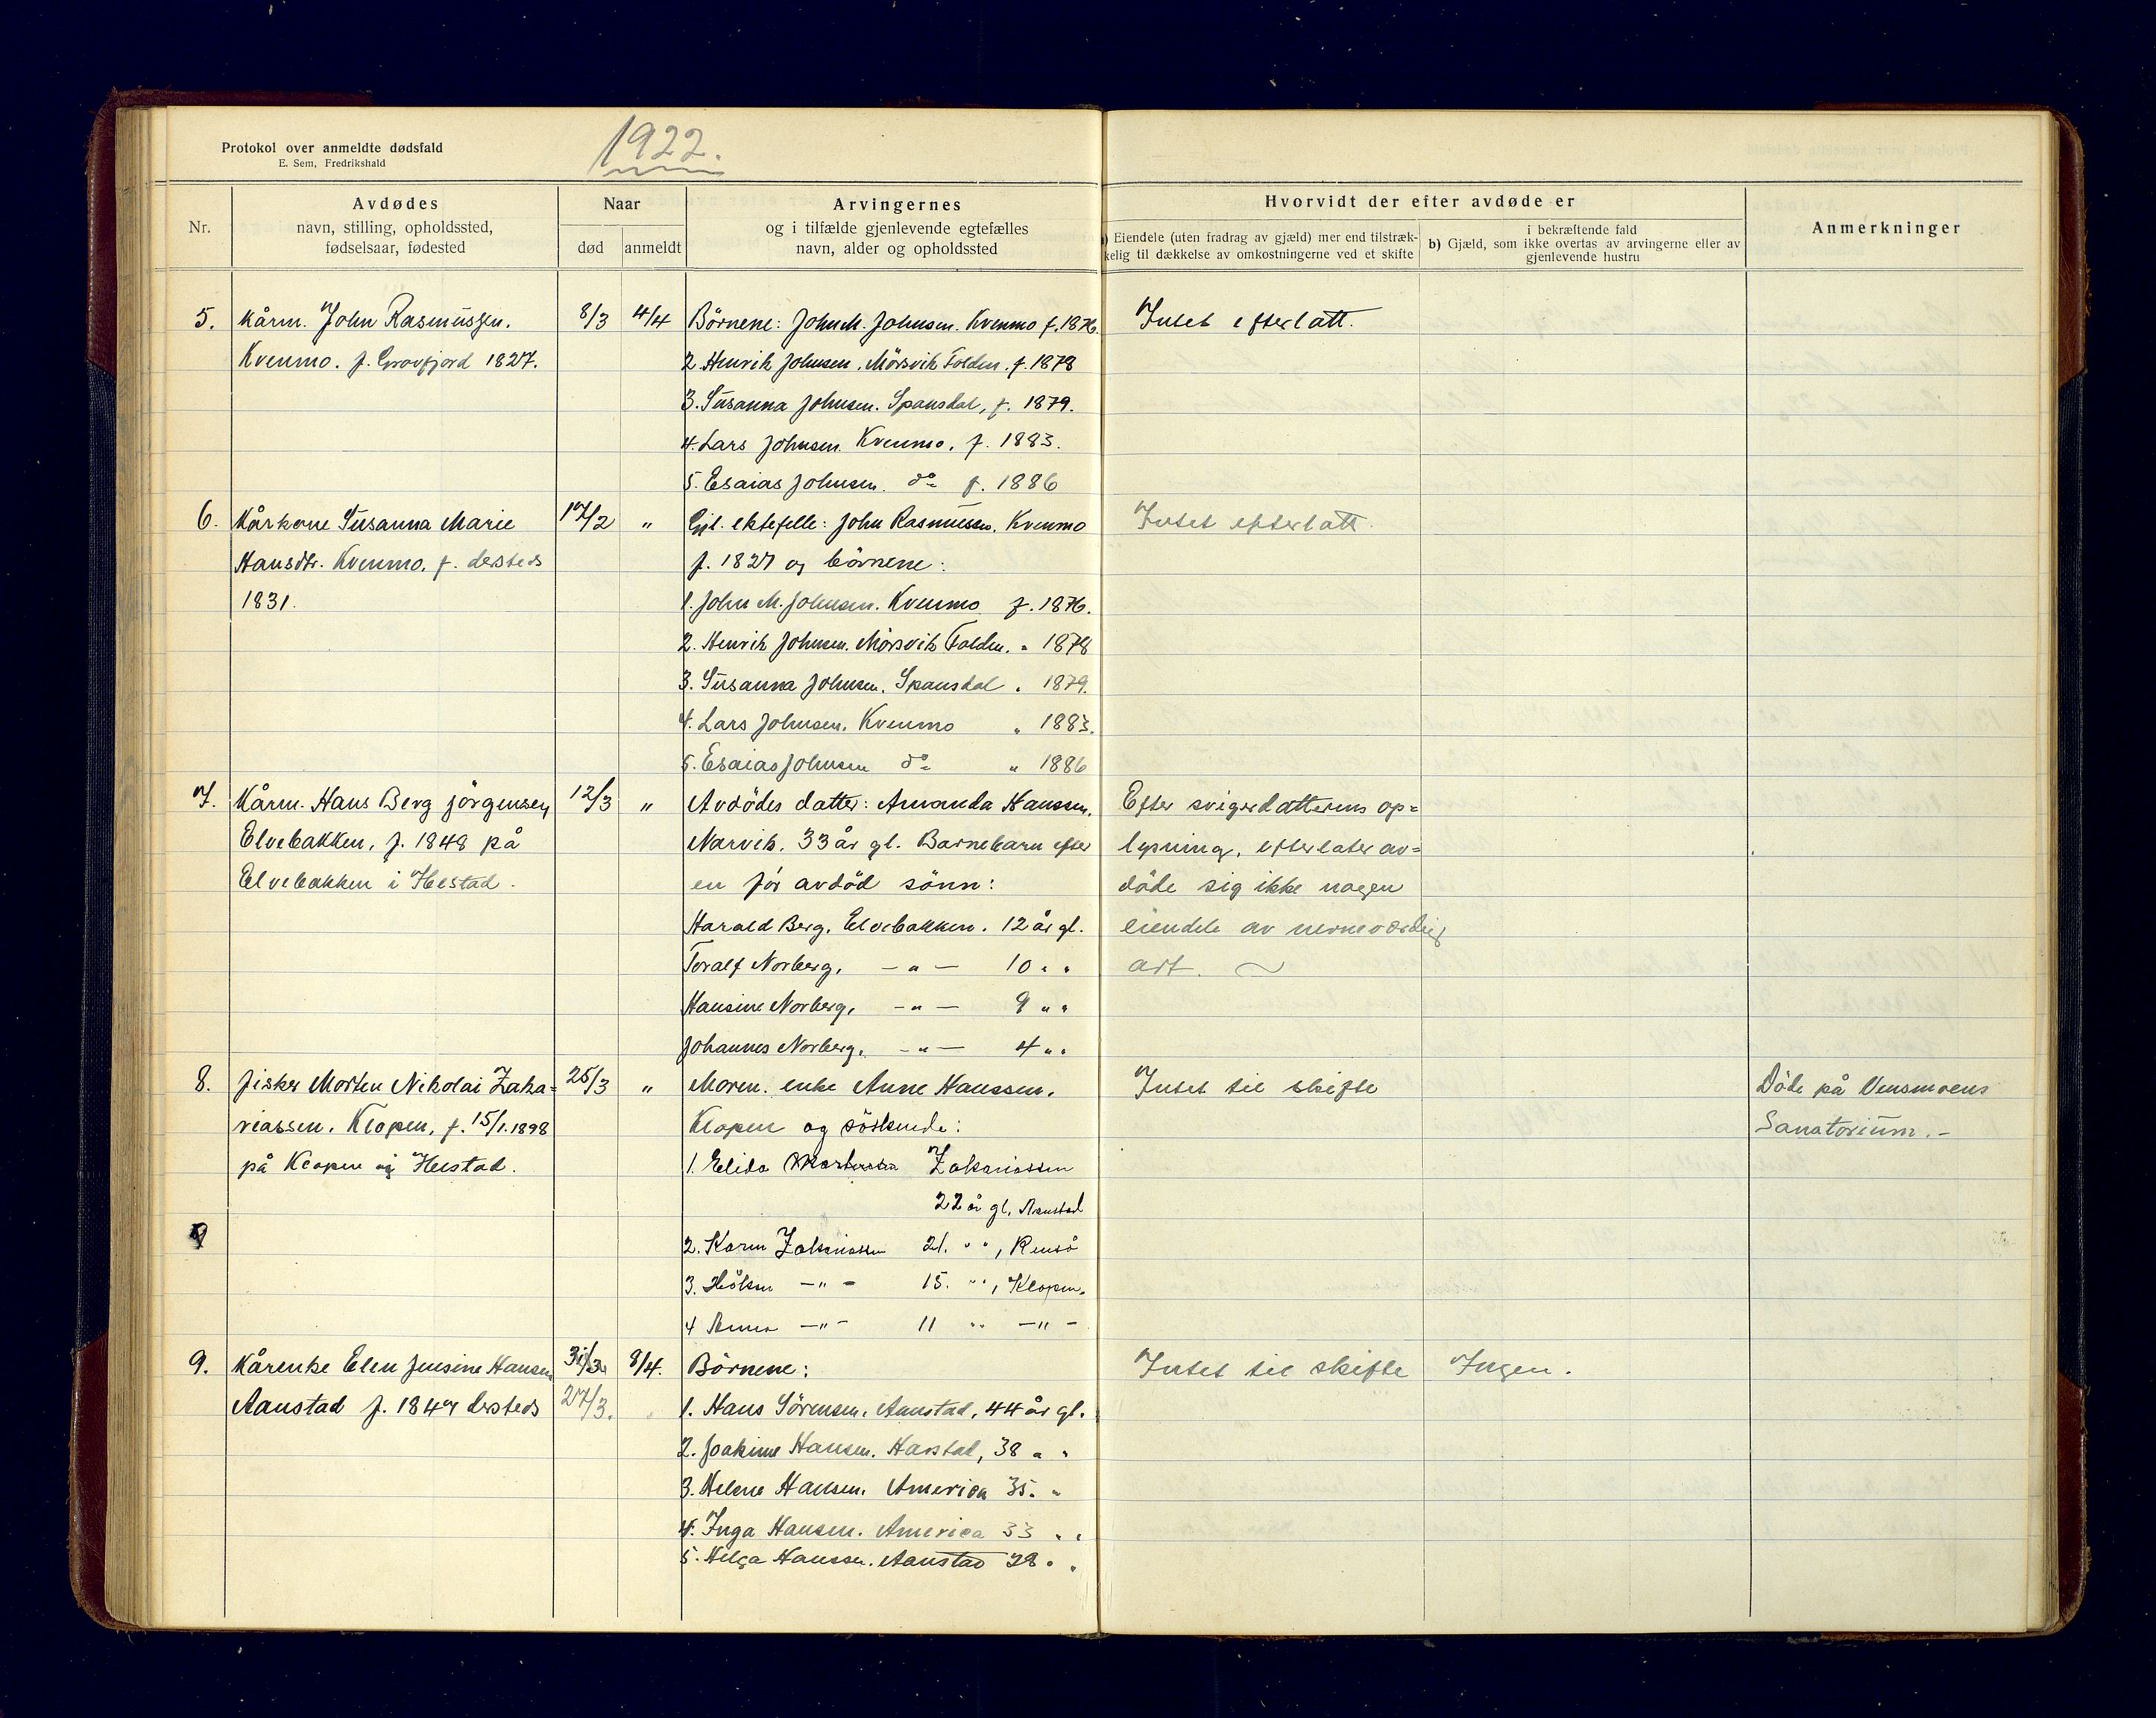 Protokol over anmeldte dødsfald
E. Sem, Fredrikshald
1922.
Nr.
Avdødes
navn, stilling, opholdssted,
fødselsaar, fødested
Naar
død
anmeldt
Arvingernes
og i tilfælde gjenlevende egtefælles
navn, alder og opholdssted
Hvorvidt der efter avdøde er
a) Eiendele (uten fradrag av gjæld) mer end tilstræk-
kelig til dækkelse av omkostningerne ved et skifte
i bekræftende fald
b) Gjæld, som ikke overtas av arvingerne eller av
gjenlevende hustru
Anmerkninger
5. Kårm. John Rasmussen. 8/3 4/4 Börnene: John M. Johnsen. Kvenmo f. 1876. Intet efterlatt.
Kvenmo. f. Grovfjord 1827. 2. Henrik Johnsen. Mörsvik Folden. f. 1878
3. Susanna Johnsen. Spansdal, f. 1879.
4. Lars Johnsen. Kvenmo. f. 1883.
5. Esaias Johnsen. do f. 1886
6. Kårkone Susanna Marie 17/2 " Gjl. ektefelle: John Rasmussen. Kvenmo Intet efterlatt.
Hansdtr. Kvenmo. f. dersteds f. 1827 og börnene:
1831. 1. John M. Johnsen. Kvenmo f. 1876.
2. Henrik Johnsen. Mörsvik Folden. " 1878
3. Susanna Johnsen. Spansdal " 1879.
4. Lars Johnsen. Kvenmo " 1883.
5. Esaias Johnsen do " 1886
7. Kårm. Hans Berg Jörgensen, 12/3 " Avdödes datter: Amanda Hanssen. Efter svigerdatterens op=
Elvebakken, f. 1848 på Narvik. 33 år gl. Barnebarn efter lysning, efterlater av=
Elvebakken i Ibestad. en för avdöd sönn: döde sig ikke nogen
Harald Berg. Elvebakken. 12 år gl. eiendele av nevneværdig
Toralf Norberg, — " — 10 " " art.
Hansine Norberg, — " — 9 " "
Johannes Norberg, — " — 4 " "
8. Fisker Morten Nikolai Zaka= 25/3 " Moren. enke Anne Hanssen. Intet til skifte Döde på Vensmoens
riassen. Klopen, f. 15/1. 1898 Klopen og söskende: Sanatorium. -
på Klopen i Ibestad. 1. Elida Zakariassen
22 år gl. Aanstad
9 2. Karen Zakariassen 21. " ", Renså
3. Håkon — " — 15. " ", Klopen.
4 Anna — " — 11 " " — " —
9. Kårenke Elen Jensine Hansen 31/3. 8/4. Börnene: Intet til skifte Ingen.
Aanstad f. 1847 dersteds 27/3. 1. Hans Sörensen. Aanstad, 44 år gl.
2. Joakime Hansen. Harstad, 38 " "
3. Helene Hansen. America 35. "
4. Inga Hansen. America 33 " "
5. Helga Hanssen. Aanstad 28 " "